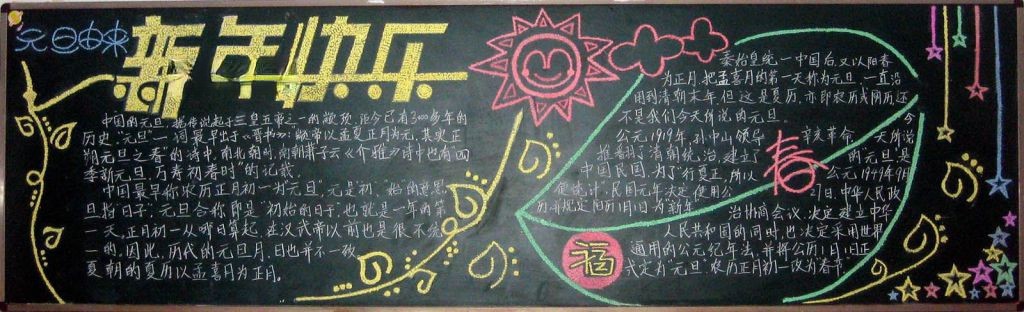 元旦由来
新年快乐
中国的元旦,据传说起于三皇五帝之一的颛顼,距今已有3000多年的
历史。"元旦"一词最早出于《晋书》:"颛帝以孟夏正月为元,其实正
朔元旦之春"的诗中。南北朝时,南朝萧子云《介雅》诗中也有"四
季新元旦,万寿初春时"的记载。
中国最早称农历正月初一为"元旦",元是"初"、"始"的意思,
旦指"日子",元旦合称即是"初始的日子",也就是一年的第
一天。正月初一从哪日算起,在汉武帝以前也是很不统
一的,因此,历代的元旦月、日也并不一致。
夏朝的夏历以孟喜月为正月。
秦始皇统一中国后,又以阳春
为正月,把孟喜月的第一天称为元旦,一直沿
用到清朝末年。但这是夏历,亦即农历或阴历,还
不是我们今天所说的元旦。
公元1919年,孙中山领导辛亥革命
推翻了清朝统治,建立了
中国民国。为了"行夏正,所以
便统计",民国元年决定使用公
历,并规定阳历1月1日为"新年"
春
今
天所说
的"元旦"是
公元1949年9月
27日,中华人民政
治协商会议,决定建立中华
人民共和国的同时,也决定采用世界
通用的公元纪年法,并将公历1月1日正
式定为"元旦",农历正月初一改为"春节"
福